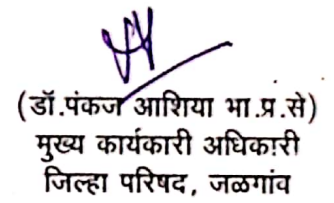 (डॉ.पंकज आशिया भा.प्र.से)
मुख्य कार्यकारी अधिकारी
जिल्हा परिषद, जळगांव